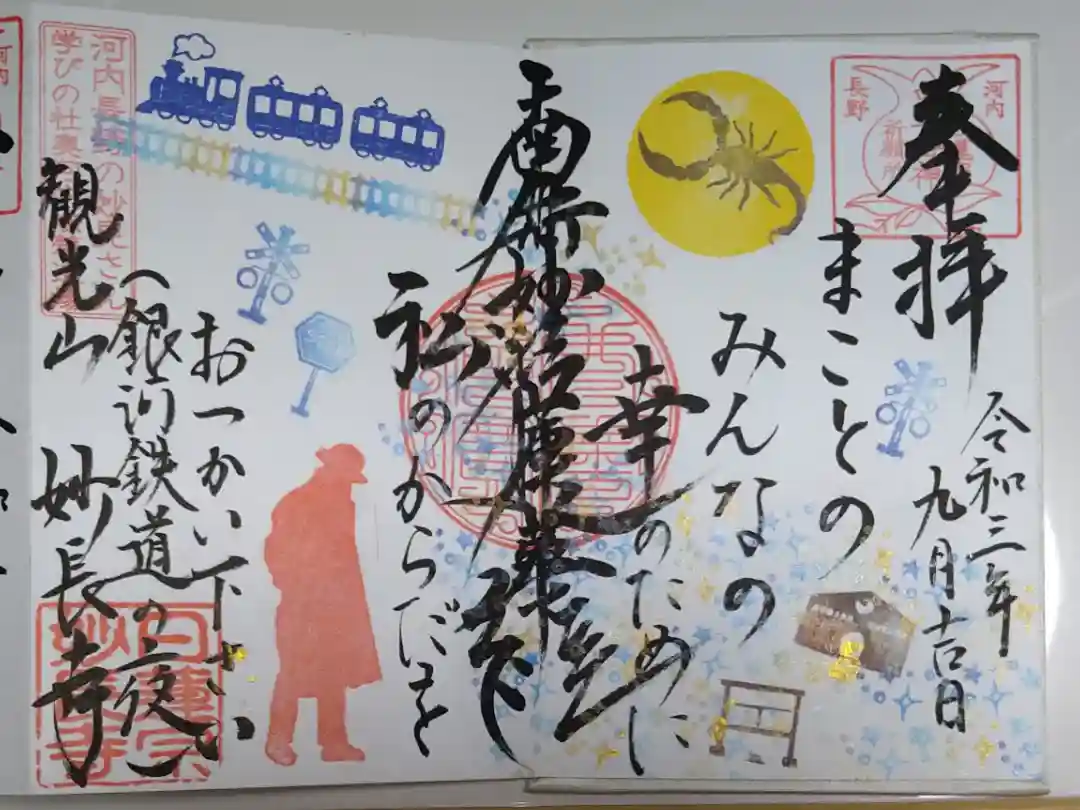 奉拝
令和三年
九月吉日
河内
長野
まことの
みんなの
幸のために
南無妙法蓮華経
私のからだを
おつかい下さい
(銀河鉄道の夜)
観光山 妙長寺
河内長野の妙見さん
日蓮宗
妙長寺